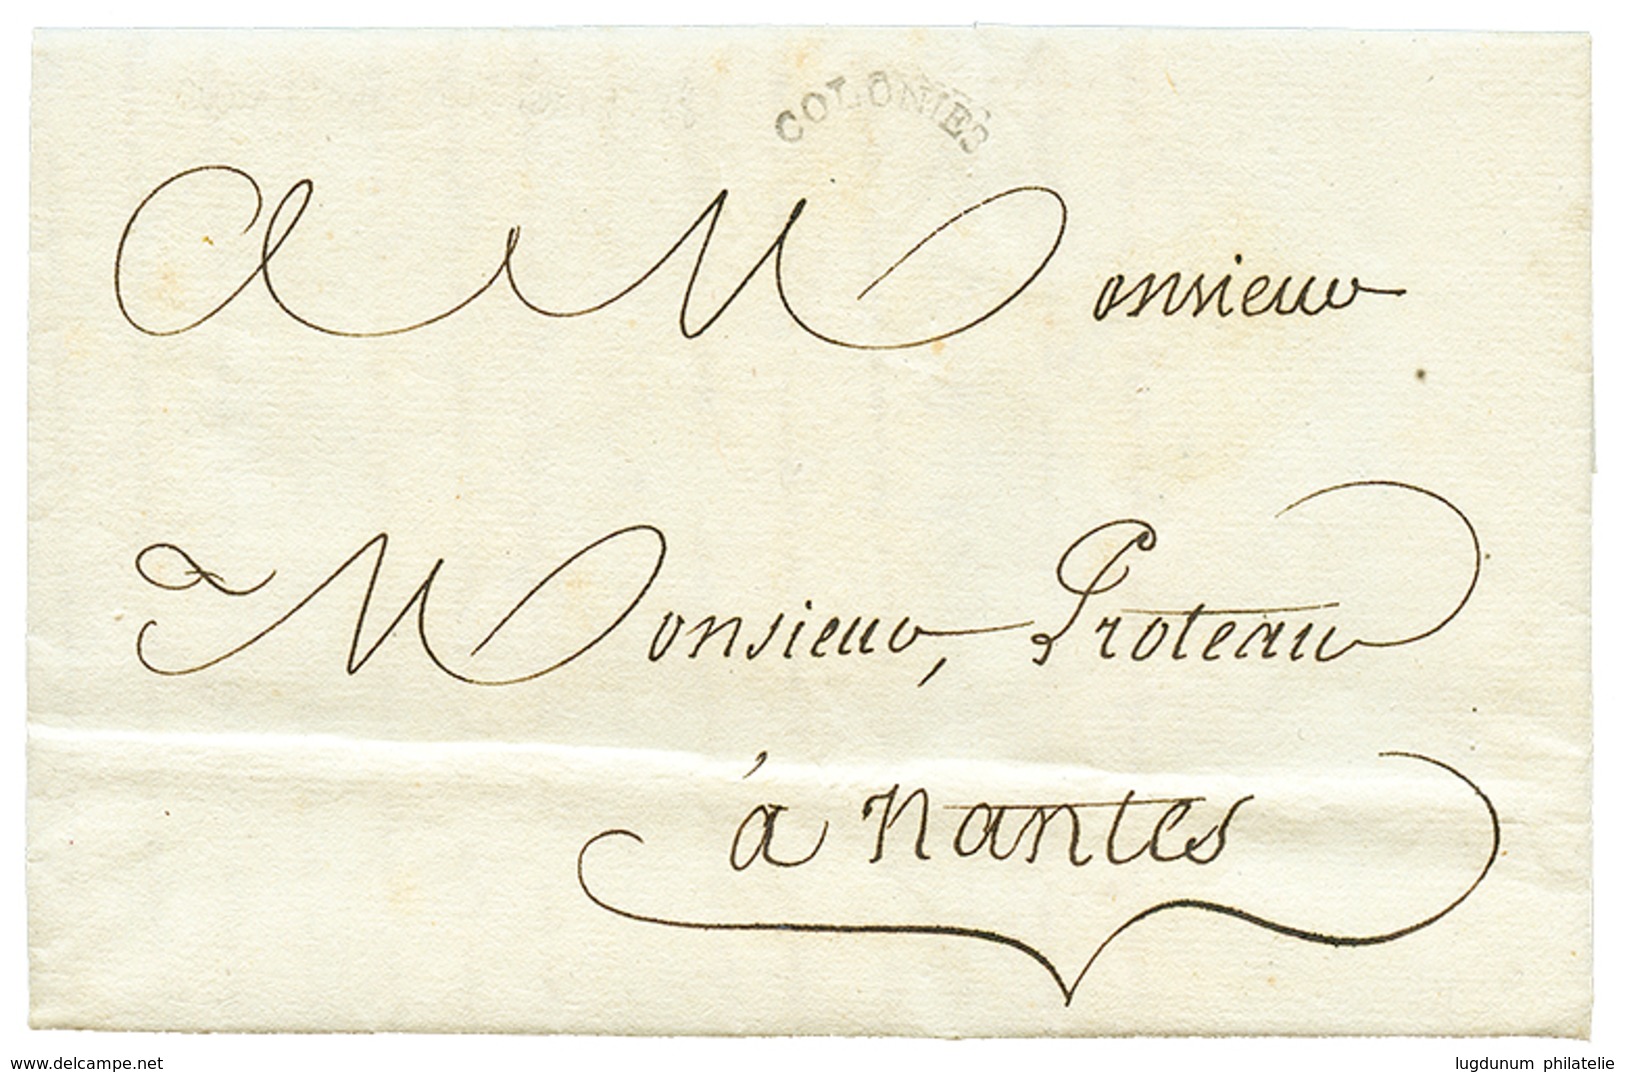 COLONIES
A Monsieur
Monsieur, Proteau
à nantes
www.delcampe.net
lugdunum philatelie